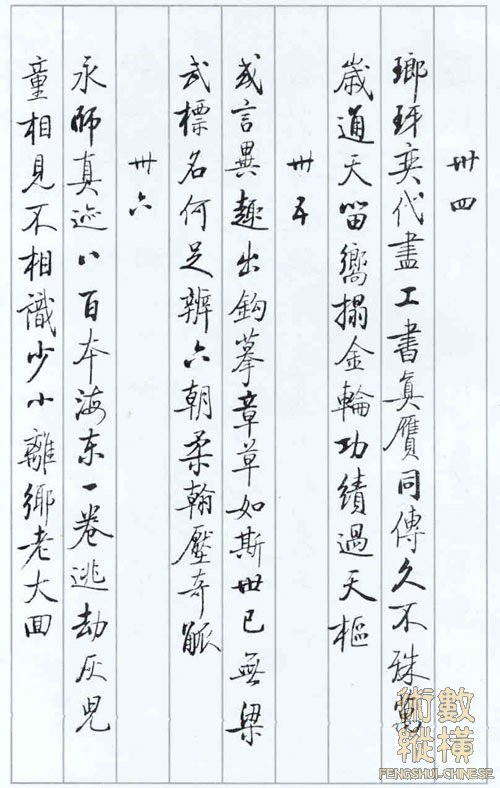 卅四
瑯琊奕代盡工書真贋同傳久不殊萬
歲通天留響搨金輪功績過天樞
卅五
或言異趣出鈎摹章草如斯世已無梁
武標名何足辨六朝柔翰壓奇觚
卅六
永師真迹八百本海東一卷逃劫灰兒
童相見不相識少小離鄉老大回
術數
縱橫
FENGSHUI-CHINESE